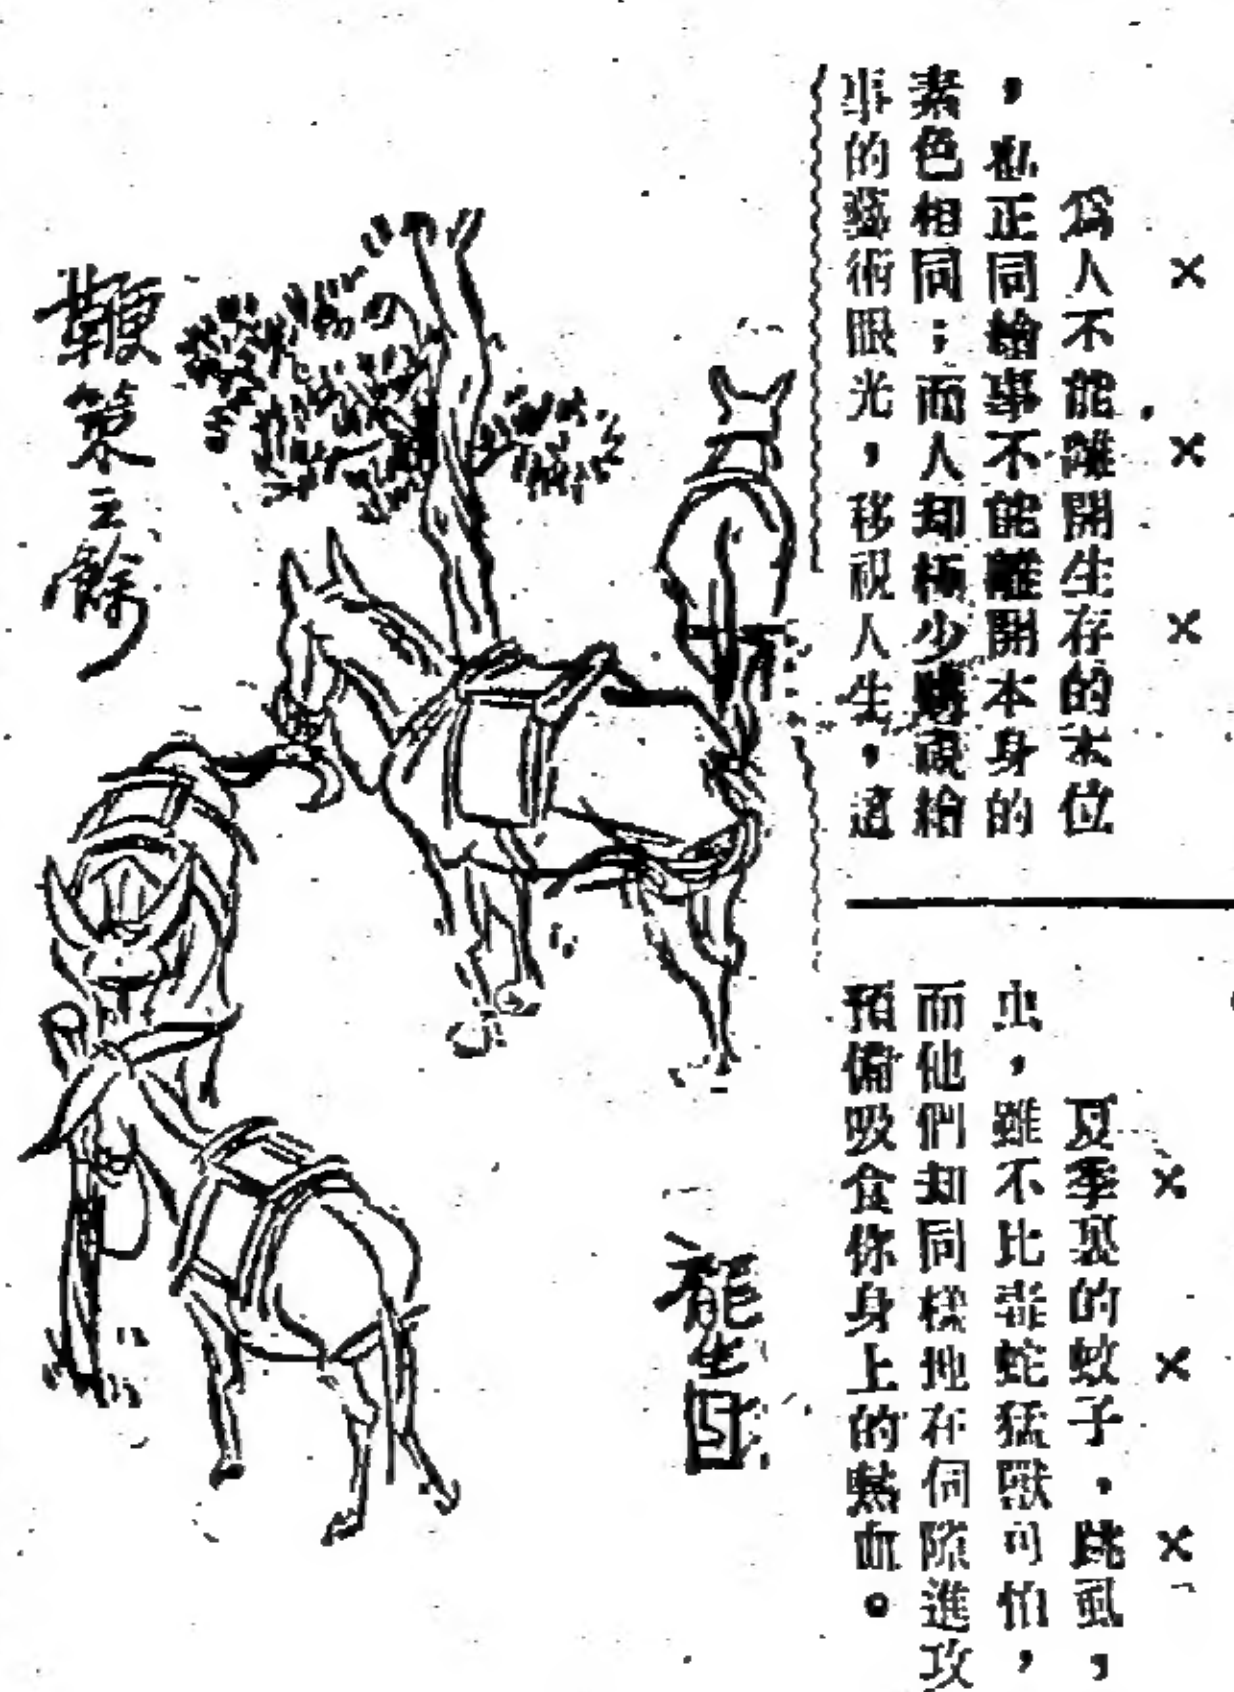 ×　×　×
為人不能離開生存的本位
，也正同繪事不能離開本身的
素色相同；而人却極少購
事的藝術眼光，移視人生，這
×　×　×
夏季裏的蚊子，跳虱，
虫，雖不比毒蛇猛獸可怕，
而他們却同樣地在伺隙進攻
預備吸食你身上的熱血。
鞭策之餘
龍生